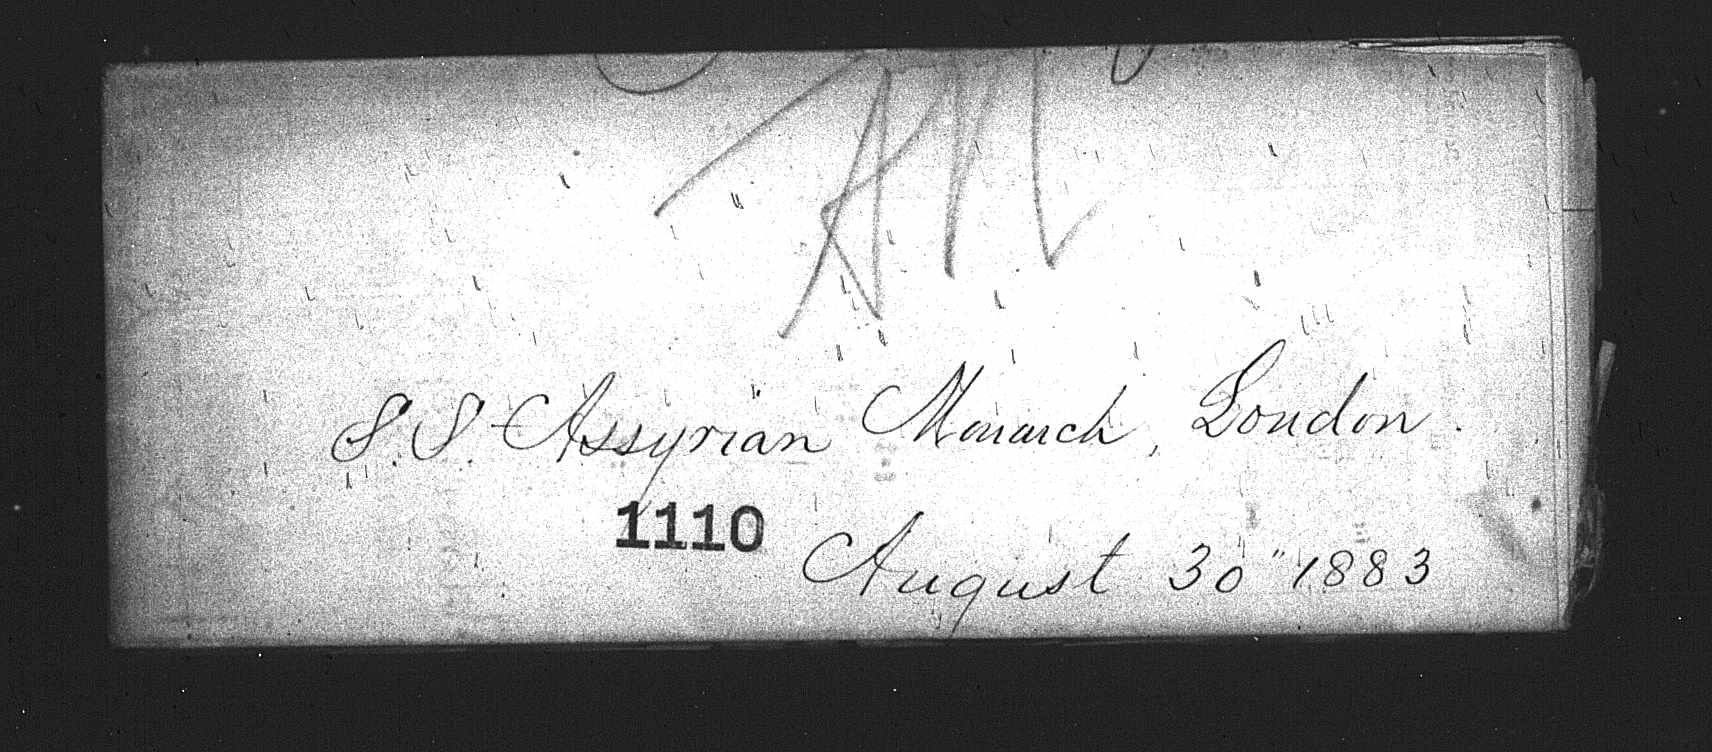 S.S. Assyrian Monarch, London.
1110
August 30" 1883